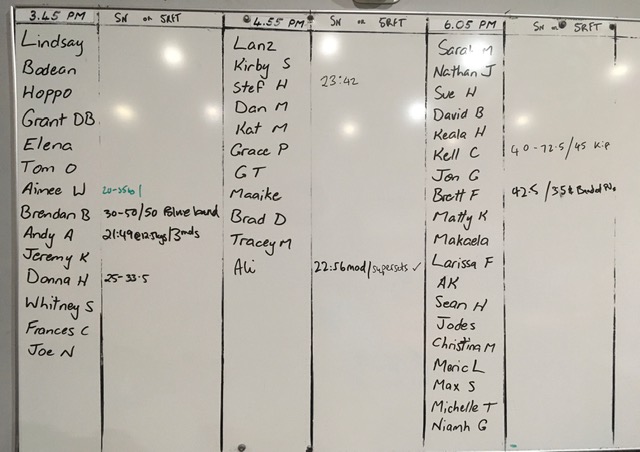 3.45 PM SN or 5RFT
Lindsay
Bodean
Hoppo
Grant DB
Elena
Tom O
Aimee W
Brendan B 30-50/50 band
Andy A 21:49@12.5kgs/3rnds
Jeremy K
Donna H 25-33.5
Whitney S
Frances C
Joe N
4.55 PM SN or 5RFT
Lanz
Kirby S
Stef H 23:42
Dan M
Kat M
Grace P
GT
Maaike
Brad D
Tracey M
Ali 22:56mod/supersets ✓
6.05 PM SN or 5RFT
Sarah M
Nathan J
Sue H
David B
Keala H
Kell C 40-72.5/45 Kip
Jon G
Brett F 42.5/35k
Matty K
Makaela
Larissa F
AK
Sean H
Jodes
Christina M
L
Max S
Michelle T
Niamh G